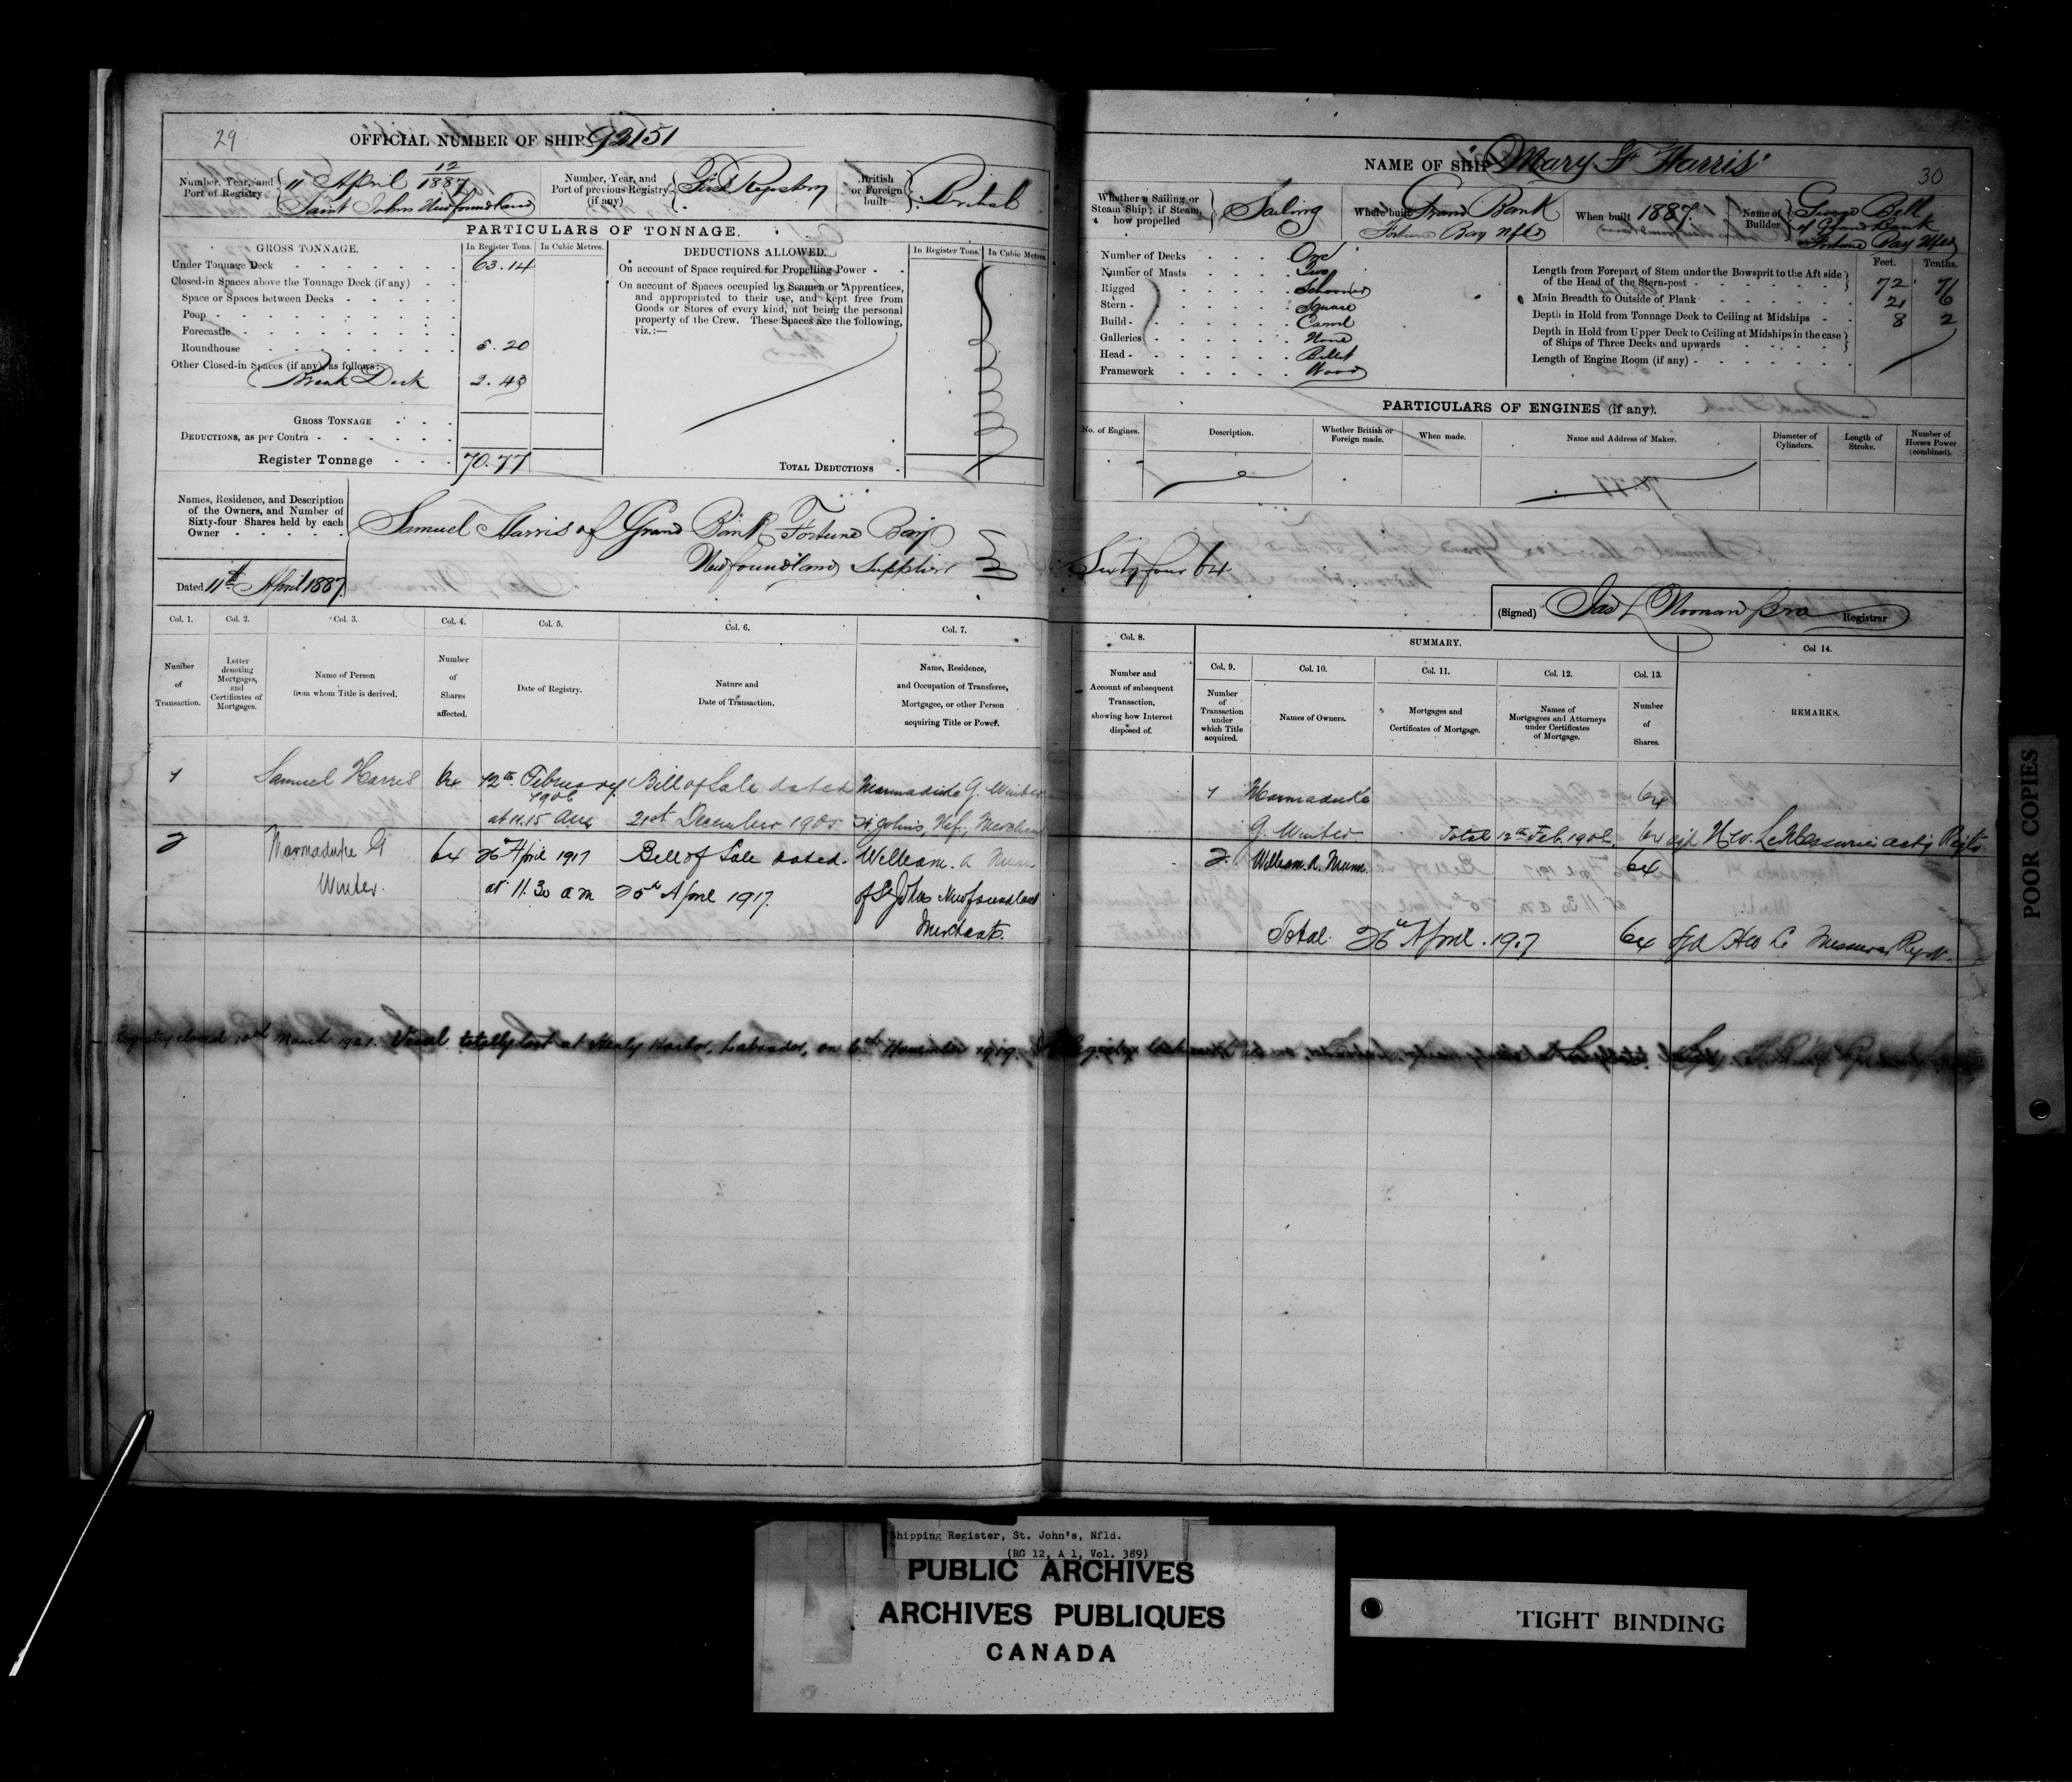 29
OFFICIAL NUMBER OF SHIP 92151
Number, Year, and Port of Registry 11 April 12/1887 Saint Johns Newfoundland
Number, Year, and Port of previous Registry (if any) First Registry
British or Foreign built British
PARTICULARS OF TONNAGE.
GROSS TONNAGE. In Register Tons. In Cubic Metres.
Under Tonnage Deck 63.14
Closed-in Spaces above the Tonnage Deck (if any)
Space or Spaces between Decks
Poop
Forecastle
Roundhouse 5.20
Other Closed-in Spaces (if any), as follows:
Break Deck 2.43
GROSS TONNAGE
DEDUCTIONS, as per Contra
Register Tonnage 70.77
DEDUCTIONS ALLOWED. In Register Tons. In Cubic Metres.
On account of Space required for Propelling Power
On account of Spaces occupied by Seamen or Apprentices,
and appropriated to their use, and kept free from
Goods or Stores of every kind, not being the personal
property of the Crew. These Spaces are the following,
viz.:—
TOTAL DEDUCTIONS
Names, Residence, and Description
of the Owners, and Number of
Sixty-four Shares held by each
Owner
Samuel Harris of Grand Bank Fortune Bay
Newfoundland Supplier
Dated 11th April 1887
Col. 1. Col. 2. Col. 3. Col. 4. Col. 5. Col. 6. Col. 7.
Number of Transaction.
Letter denoting Mortgages, and Certificates of Mortgages.
Name of Person from whom Title is derived.
Number of Shares affected.
Date of Registry.
Nature and Date of Transaction.
Name, Residence, and Occupation of Transferee, Mortgagee, or other Person acquiring Title or Power.
1 Samuel Harris 64 12th February Bill of Sale dated Marmaduke G. Winter
1906
at 11.15 21st December 1905 St. John's, Nf.,
2 Marmaduke G 64 26 April 1917 Bill of Sale dated William. A Munn
Winter. at 11.30 am 25th April 1917. of St Johns Newfoundland
Merchant.
Registry closed 10th March 1921. Vessel totally lost at Henly Harbor, Labrador, on 6th November 1919.
NAME OF SHIP "Mary F Harris"
30
Whether a Sailing or Steam Ship; if Steam, how propelled Sailing
Where built Grand Bank Fortune Bay Nfld
When built 1887.
Name of Builder George Bell of Grand Bank Fortune Bay Nfld
Number of Decks One
Number of Masts Two
Rigged Schooner
Stern Square
Build Carvel
Galleries None
Head Billet
Framework Wood
Feet. Tenths.
Length from Forepart of Stem under the Bowsprit to the Aft side
of the Head of the Stern-post 72 7
Main Breadth to Outside of Plank 21 6
Depth in Hold from Tonnage Deck to Ceiling at Midships 8 2
Depth in Hold from Upper Deck to Ceiling at Midships in the case
of Ships of Three Decks and upwards
Length of Engine Room (if any)
PARTICULARS OF ENGINES (if any).
No. of Engines. Description. Whether British or Foreign made. When made. Name and Address of Maker. Diameter of Cylinders. Length of Stroke. Number of Horses Power (combined).
Sixty four 64
(Signed) Jas L Noonan Registrar
Col. 8. SUMMARY. Col 14.
Number and Account of subsequent Transaction, showing how Interest disposed of.
Col. 9. Col. 10. Col. 11. Col. 12. Col. 13.
Number of Transaction under which Title acquired.
Names of Owners.
Mortgages and Certificates of Mortgage.
Names of Mortgagees and Attorneys under Certificates of Mortgage.
Number of Shares.
REMARKS.
1 Marmaduke 64
G. Winter Total 12th Feb. 1906. 64 sgd H.W. LeMessurier
2. William. A. Munn. 64
Total. 26th April. 1917 64 sgd HW Le Messurier
POOR COPIES
Shipping Register, St. John's, Nfld.
(RG 12, A 1, Vol. 389)
PUBLIC ARCHIVES
ARCHIVES PUBLIQUES
CANADA
TIGHT BINDING